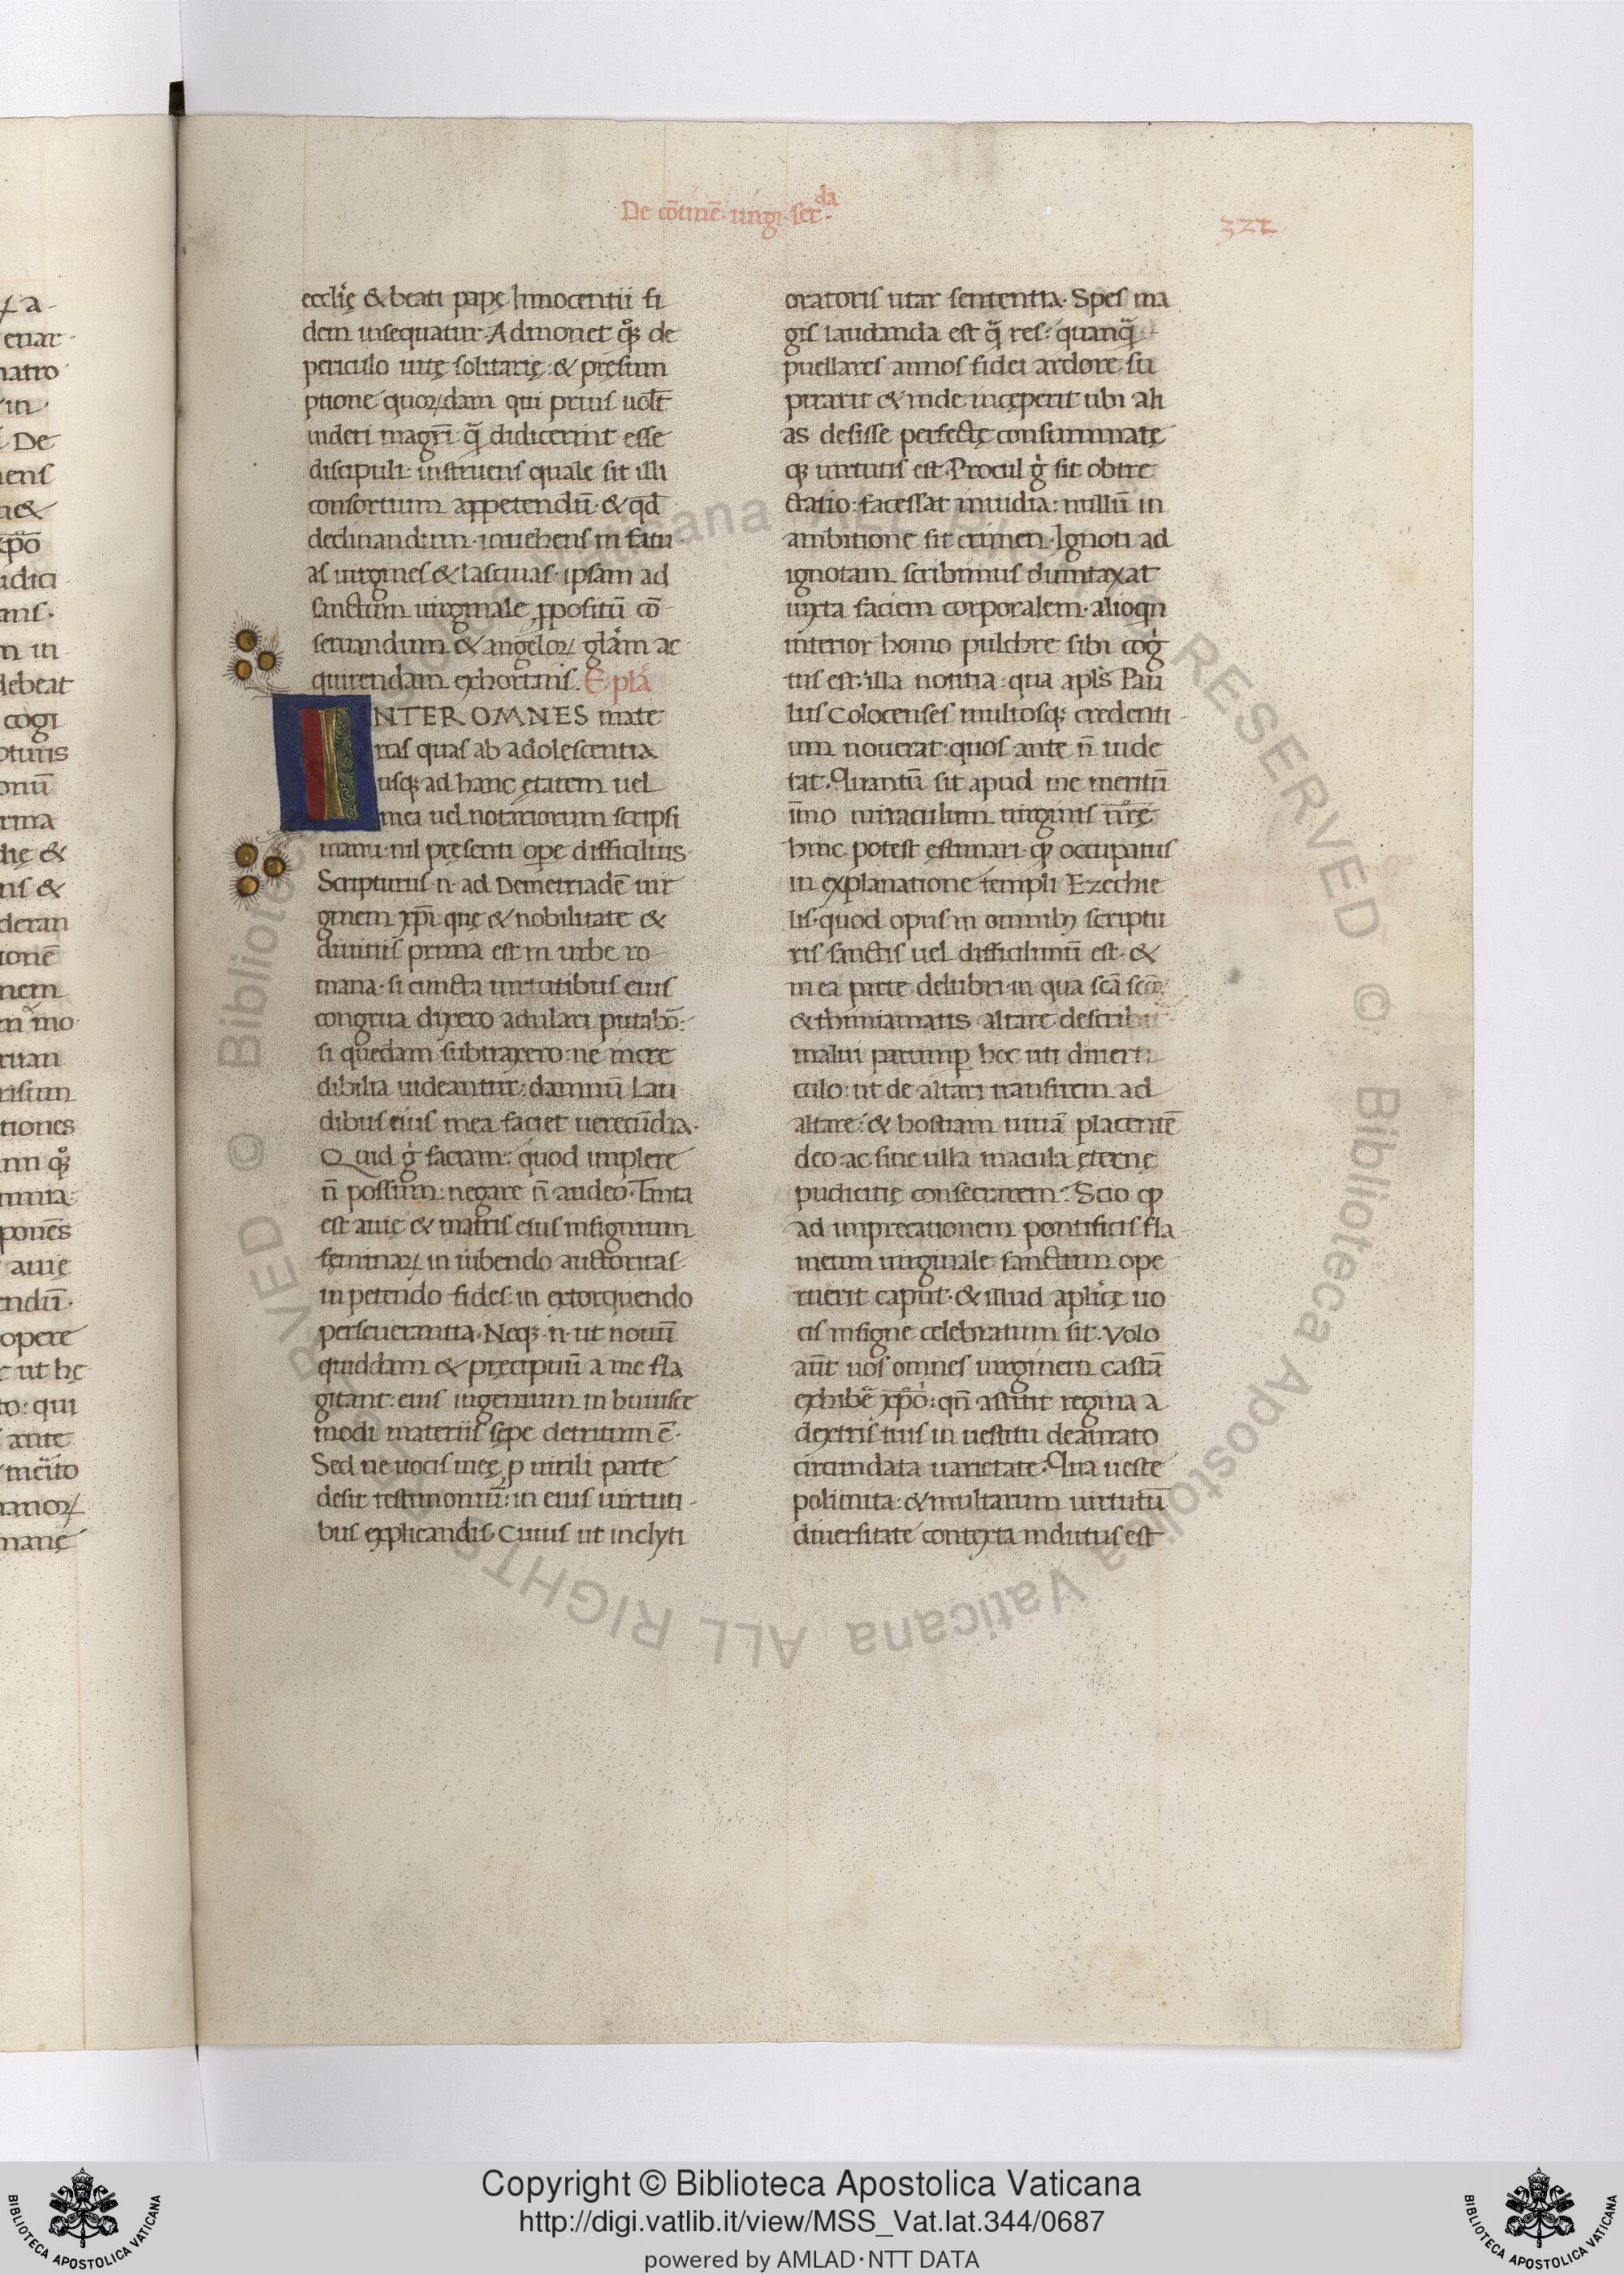 De cōtinē· uirgi· secda·
322
eccl'ię & beati papę Innocentii fi
dem insequatur· Admonet qͦꝫ de
periculo uitę solitarię: & pręsum
ptione quoꝝdam qui prius uolt̄
uideri magr̄i· q̄ didicerint esse
discipuli: instruens quale sit illi
consortium appetendū· & qd̄
declinandum· inuehens in fatu
as uirgines & lasciuas· ipsam ad
sanctum uirginale ꝓpositū cō-
seruandum & angeloꝝ glām ac-
quirendam exhortans. E pl'a
INTER OMNES mate
rias quas ab adolescentia
usqꝫ ad hanc ętatem uel
mea uel notariorum scripsi
manu· nil pręsenti ope difficilius·
Scripturus· n· ad Demetriadē uir
ginem xp̄i quę & nobilitate &
diuitiis prima est in urbe ro-
mana· si cuncta uirtutibus eius
congrua dixero adulari putabō:
si quędam subtraxero· ne incre
dibilia uideantur: damnū Lau
dibus eius mea faciet uerecūdia·
Quid g̊ faciam: quod implere
n̄ possum: negare n̄ audeo· Tanta
est auię & matris eius insignium
feminaꝝ in iubendo auctoritas·
in petendo fides· in extorquendo
perseuerantia· Neqꝫ· n· ut nouū
quiddam & pręcipuū a me fla
gitant: eius ingenium in huiusce
modi materiis sępe detritum ē·
Sed ne uocis meę ꝓ uirili parte
desit testimoniū: in eius uirtuti-
bus explicandis· Cuius ut inclyti
oratoris utar sententia· Spes ma
gis laudanda est q̄ res: quanq̄
puellares annos fidei ardore su
perarit & inde incęperit ubi ali
as desisse perfectę consummatę
qꝫ uirtutis est· Procul g̊ sit obtre
ctatio· facessat inuidia: nullū in
ambitione sit crimen· Ignoti ad
ignotam scribimus dumtaxat
iuxta faciem corporalem· alioqn
interior homo pulchre sibi cog̍
tus est· illa notitia· qua apl's Pau
lus Colocenses multosqꝫ credenti-
um nouerat· quos ante n̄ uide
rat. Quantū sit apud me meritū
īmo miraculum uirginis nr̄ę
hinc potest ęstimari· qꝫ occupatus
in explanatione templi Ezechie
lis· quod opus in omnibꝫ scriptu
ris sanctis uel difficilimū est· &
in ea parte delubri· in qua scā scōꝝ
& thimiamatis altare describ
malui parumꝑ hoc uti diuerti
culo: ut de altari transirem ad
altare: & hostiam uiuā placentē
deo· ac sine ulla macula ęternę
pudicitię consecrarem· Scio qꝫ
ad imprecationem pontificis fla-
meum uirginale sanctum ope
ruerit caput· & illud apl'icę uo
cis insigne celebratum sit· Volo
aūt uos omnes uirginem castā
exhibē xp̄o: qn̄ astitit regina a
dextris tuis in uestitu deaurato
circundata uarietate· Qua ueste
polimita· & multarum uirtutū
diuersitate contexta indutus est
Copyright © Biblioteca Apostolica Vaticana
http://digi.vatlib.it/view/MSS_Vat.lat.344/0687
powered by AMLAD·NTT DATA